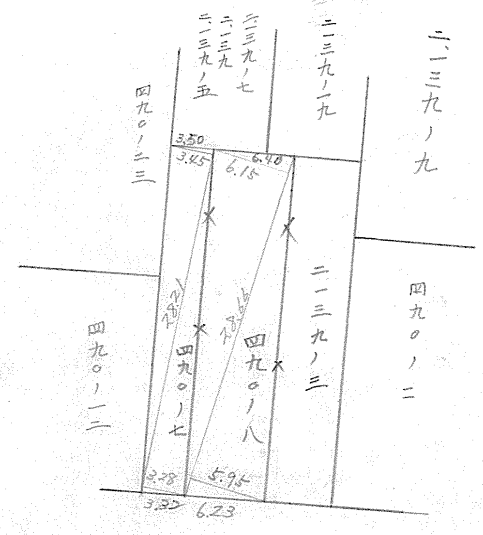 二、一三九ノ九
二一三九ノ一九
二、一三九ノ七
二、一三九
二、一三九ノ五
四九〇ノ二三
3.50
3.45
6.15
6.40
28.21
28.66
四九〇ノ一二
四九〇ノ七
四九〇ノ八
二一三九ノ三
四九〇ノ二
3.28
5.95
3.32
6.23